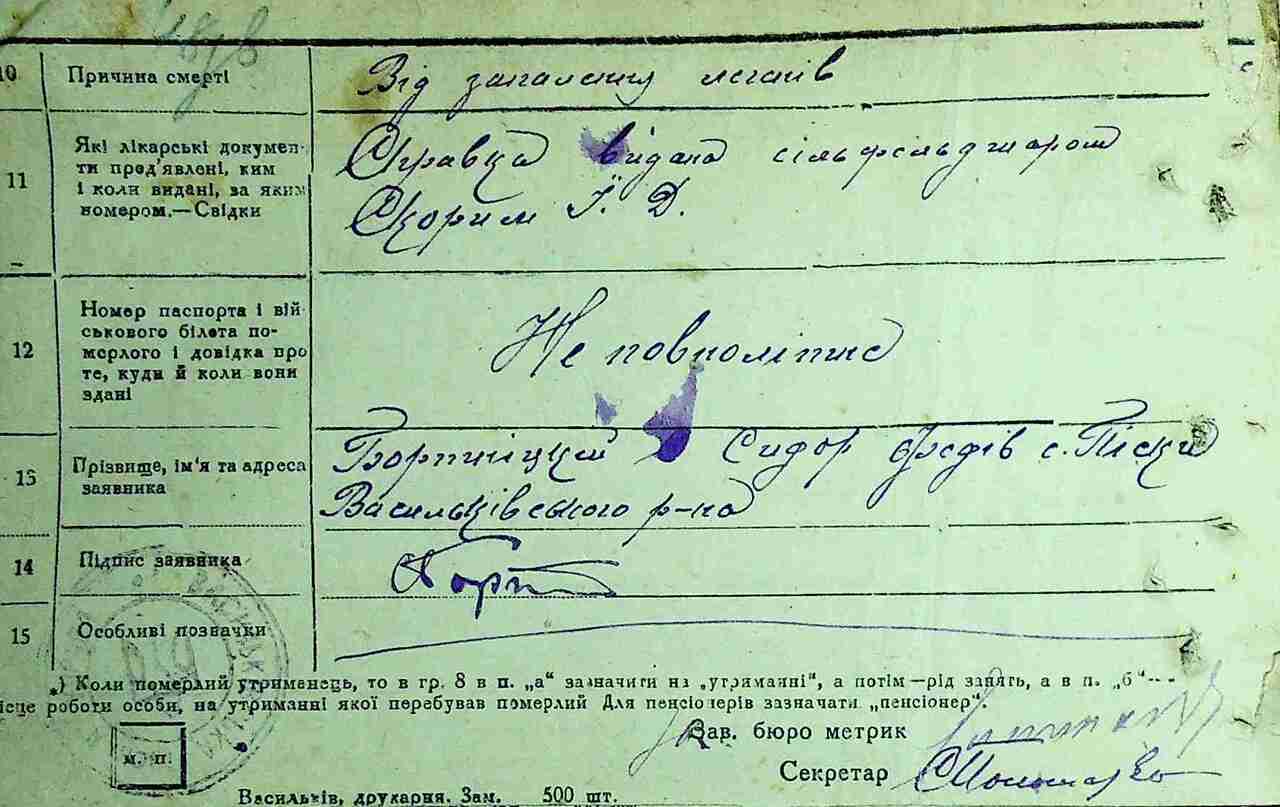 10 Причина смерті Від запалення легенів
11 Які лікарські докумен-
ти пред'явлені, ким
і коли видані, за яким
номером.—Свідки
Справка видана сільфельдшаром
Скорим Ї. Д.
12 Номер паспорта і вій-
ськового білета по-
мерлого і довідка про
те, куди й коли вони
здані
Не повнолітнє
13 Прізвище, ім'я та адреса
заявника
Сидор Федів с. Піски
Васильківського р-на
14 Підпис заявника
15 Особливі позначки
*) Коли померлий утриманець, то в гр. 8 в п. „а“ зазначити на „утриманні“, а потім—рід занять, а в п. „б“—
ісце роботи особи, на утриманні якої перебував померлий Для пенсіонерів зазначати „пенсіонер“.
Зав. бюро метрик
м. п.
Секретар
Васильків, друкарня. Зам. 500 шт.